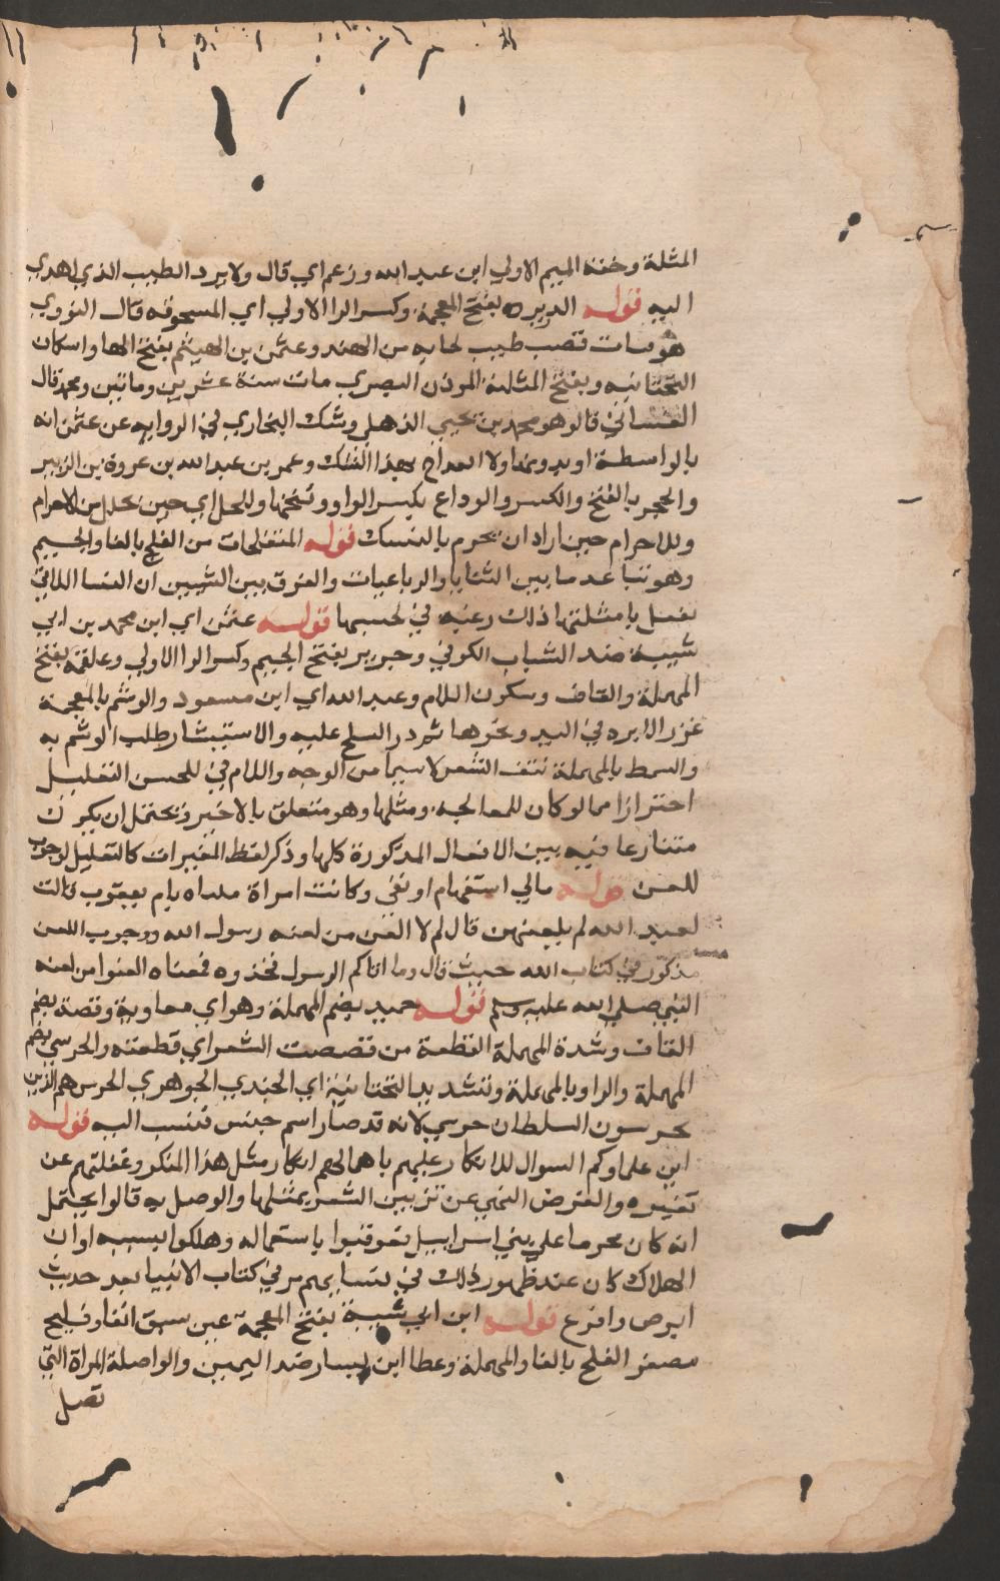 المثلة وخفة الميم الاولي ابن عبد الله وزعم اي قال ولا يرد الطيب الذي اهدي
اليه قوله الذريره بفتح المعجمة وكسر الرا الاولي اي المسحوقه قال النووي
هو فتات قصب طيب يجا به من الهند وعثمن بن الهيثم بفتح الها واسكان
التحتانيه وبفتح المثلثة الموذن البصري مات سنة عشرين وماتين ومحمد قال
الغساني قالوهو محمد بن يحيي الذهلي وشك البخاري في الروايه عن عثمن انه
بالواسطة او بدونها ولا قدح بهذا الشك وعمر بن عبد الله بن عروة بن الزبير
والحجر بالفتح والكسر والوداع بكسر الواو وفتحها وللحل اي حين تحلل من الاحرام
وللاحرام حين اراد ان يحرم بالنسك قوله المتفلجات من الفلج بالفا والجيم
وهو تباعد ما بين الثنايا والرباعيات والفرق بين السنين ان النسا اللاتي
تفعل بامثلتها ذلك رغبه في تحسينها قوله عثمن اي ابن محمد بن ابي
شيبة ضد الشباب الكوفي وجرير بفتح الجيم وكسر الرا الاولي وعلقمة بفتح
المهملة والقاف وسكون اللام وعبد الله اي ابن مسعود والوشم بالمعجمة
غرز الابره في اليد ونحوها ثم در السلح عليه والاستيشار طلب الوشم به
والسمط بالمهملة نتف الشعر لا سيما من الوجه واللام في للحسن التعليل
احترازا مما لو كان للمعالجة ومثلها وهو متعلق بالاخير ويحتمل ان يكون
متنازعا فيه بين الافعال المذكورة كلها وذكر لفظ المغيرات كالتعليل لوجوب
للعن قوله مالي استفهام او نفي وكانت امراة مكناه بام يعقوب قالت
لعبد الله لم يلعنهن قال لم لا العن من لعنه رسول الله ووجوب اللعن
مذكور في كتاب الله حيث قال وما اتاكم الرسول فخذوه فمعناه العنوا من لعنه
النبي صلي الله عليه وسلم قوله حميد بضم المهملة وهو اي معاوية وقصة بضم
القاف وشدة المهملة القطعة من قصصت الشعر اي قطعته والحرسي بضم
المهملة والرا وبالمهملة وتشديد التحتانية اي الجندي الجوهري الحرس هم الذين
يحرسون السلطان حرسي لانه قد صار اسم جنس فنسب اليه قوله
اين علماوكم السوال للانكار عليهم باهمالهم انكار مثل هذا المنكر وغفلتهم عن
تغيره والغرض النهي عن تزيين الشعر بمثلها والوصل به قالوا يحتمل
انه كان محرما علي بني اسراييل فعوقبوا باستعماله وهلكوا بسببه او ان
الهلاك كان عند ظهور ذلك في نسايهم مر في كتاب الانبيا بعد حديث
ابرص واقرع قوله ابن ابي شيبة بفتح المعجمة عبن سبق انفا وفليح
مصغر الفلح بالفا والمهملة وعطا ابن يسار ضد اليمين والواصلة المراة التي
تصل